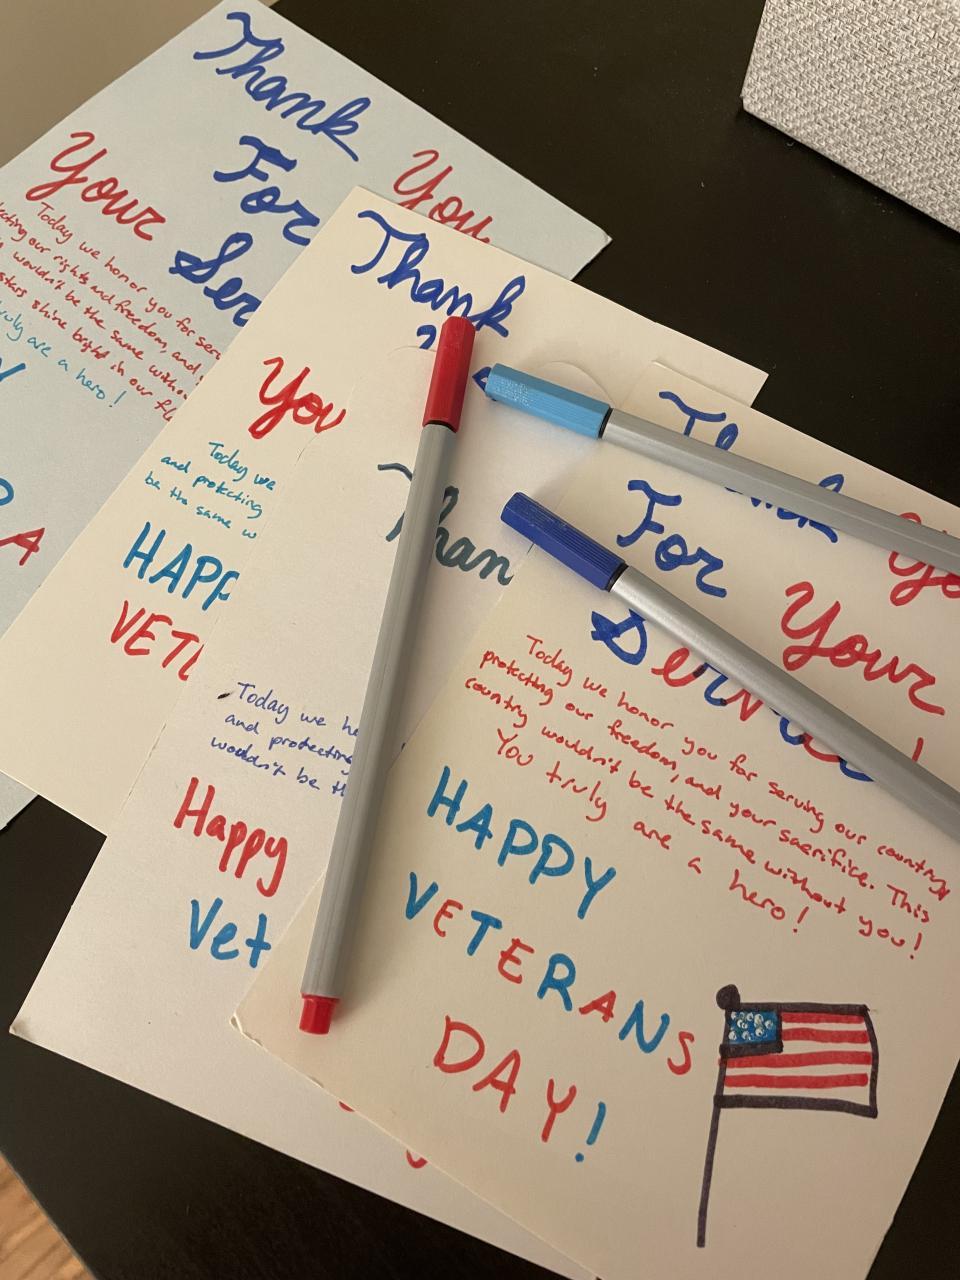 Thank
You
For
Your
Ser
Today we honor you for ser
ecting our rights and freedom, and
wouldn't be the same with
stars shine bright in our fl
ruly are a hero!
Y
A
Thank
You
Today we
and protecting
be the same w
HAPP
VETE
Than
Today we ho
and protecting
wouldn't be th
Happy
Vet
Thank
Yo
For
Your
Service!
Today we honor you for serving our country,
protecting our freedom, and your sacrifice. This
country wouldn't be the same without you!
You truly are a hero!
HAPPY
VETERANS
DAY!